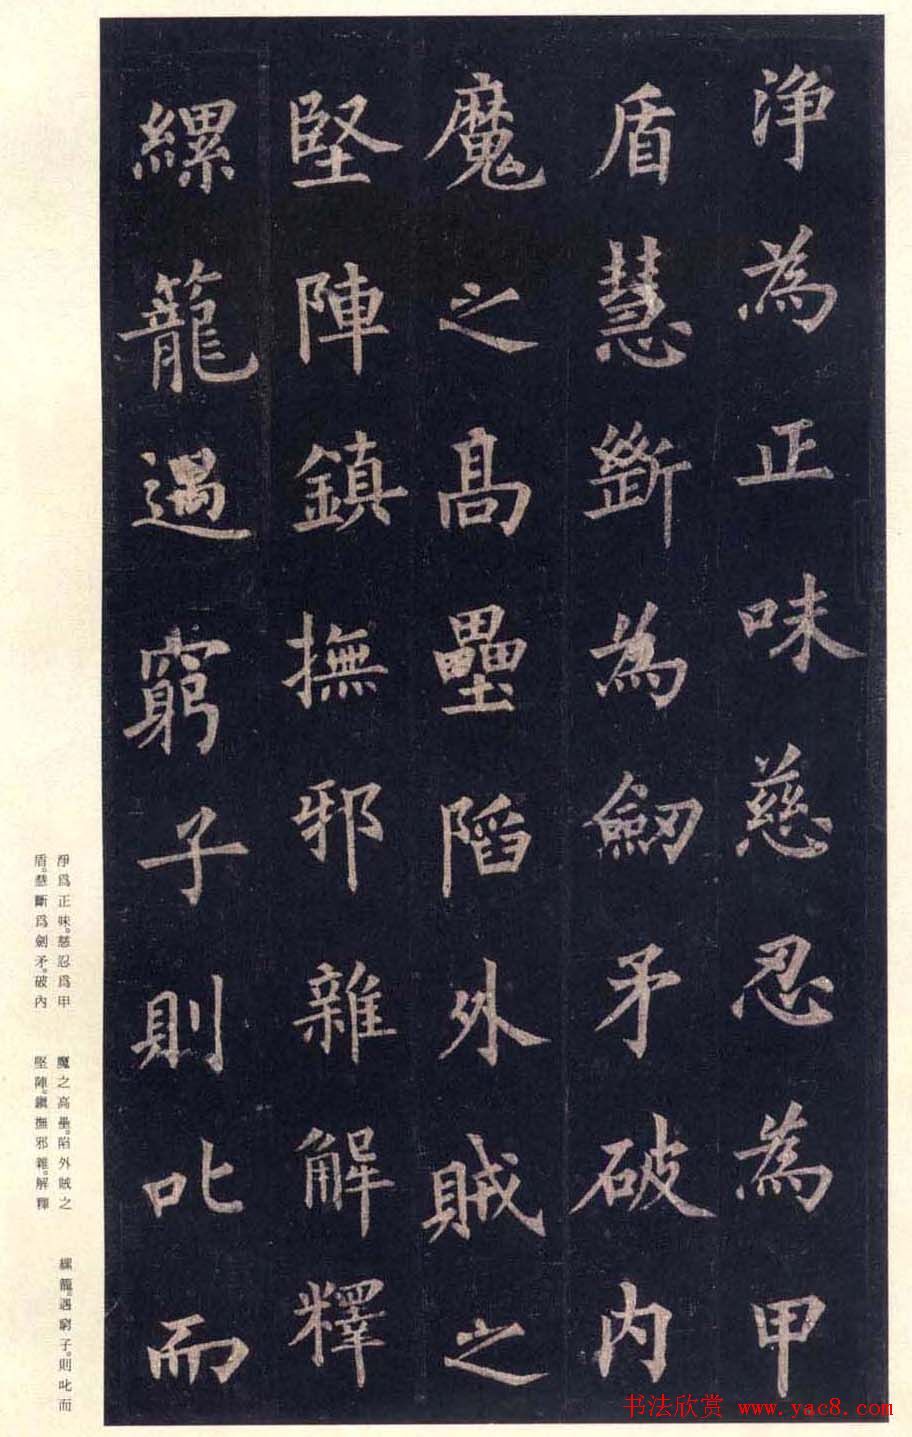 淨為正味慈忍為甲
盾慧斷為劒矛破内
魔之髙壘陷外賊之
堅陣鎮撫邪雜解釋
縲籠遇窮子則叱而
淨爲正味。慈忍爲甲
盾。慧斷爲劍矛。破內
魔之高壘。陷外賊之
堅陣。鎭撫邪雜。解釋
縲籠。遇窮子。則叱而
书法欣赏 www.yac8.com